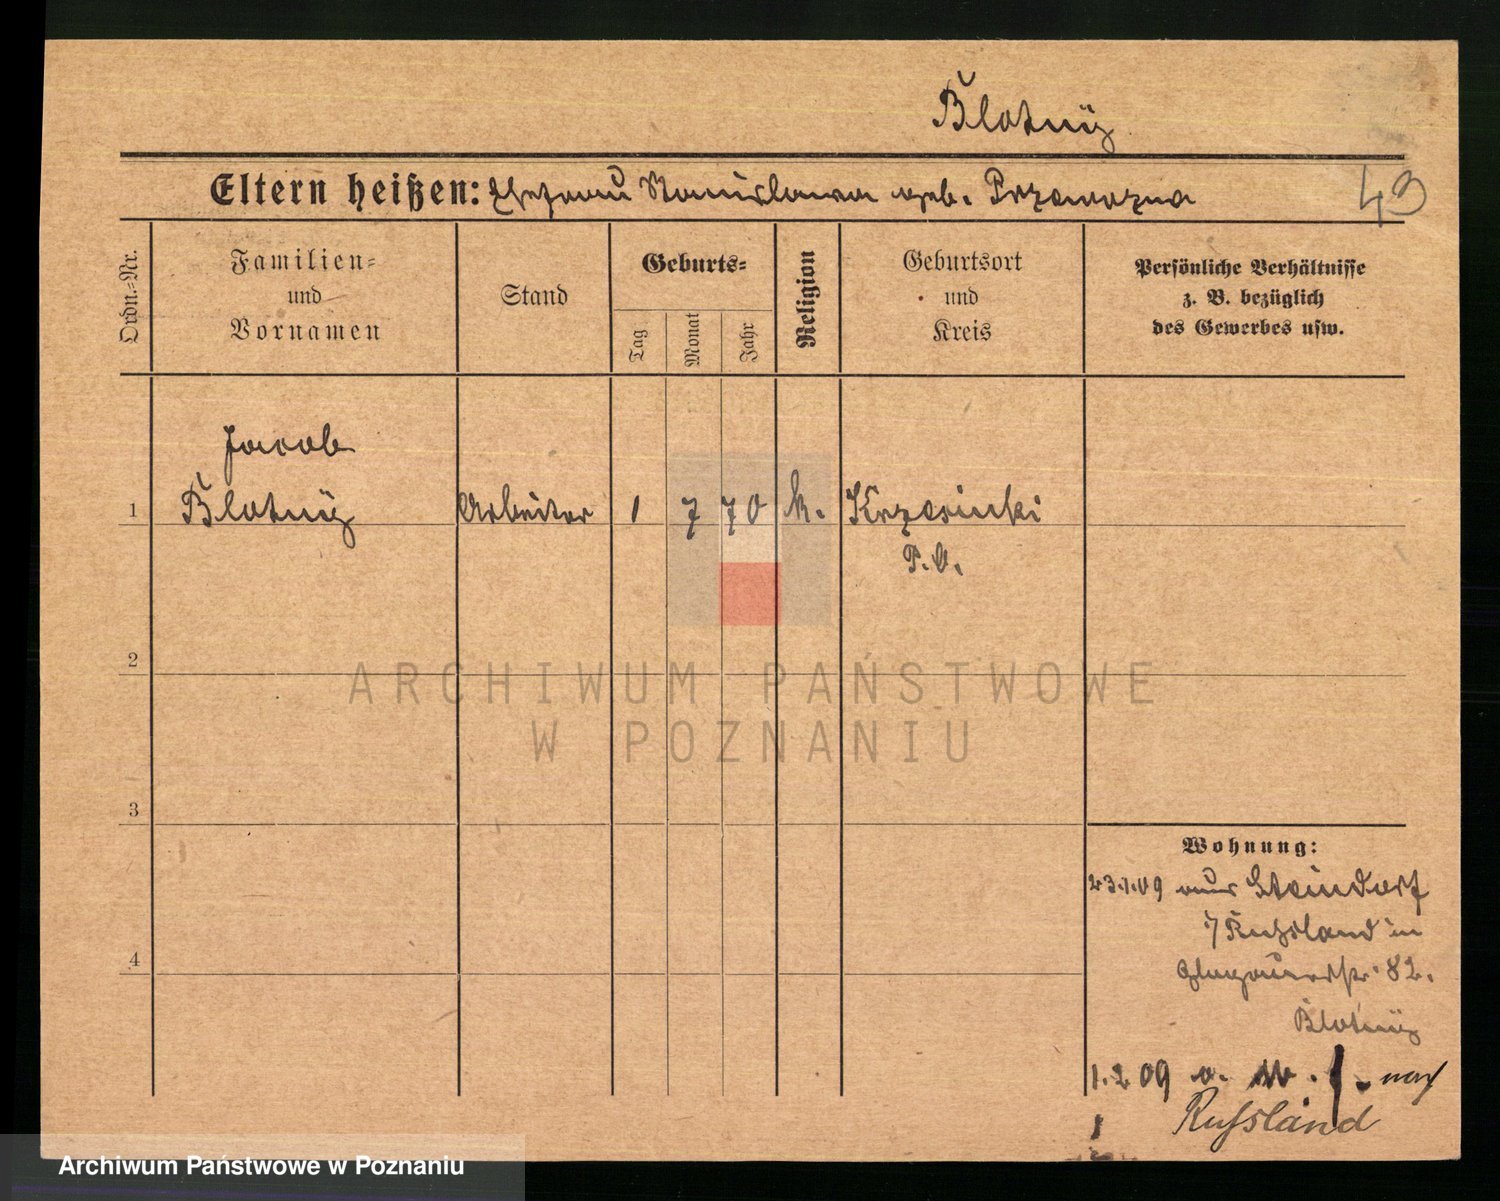 Blotny
Eltern heißen: Ehefrau Stanislawa geb. Przewozna
43
Ordn.-Nr.
Familien-
und
Vornamen
Stand
Geburts-
Tag
Monat
Jahr
Religion
Geburtsort
und
Kreis
Persönliche Verhältnisse
z. B. bezüglich
des Gewerbes usw.
Jacob
1 Blotny Arbeiter 1 7 70 k. Krzesinki
P.O.
2
3
4
ARCHIWUM PAŃSTWOWE
W POZNANIU
Wohnung:
23.1.09 aus Steindorf
Russland in
Glogauerstr. 82.
Blotny
1.2 09 nach
Russland
Archiwum Państwowe w Poznaniu